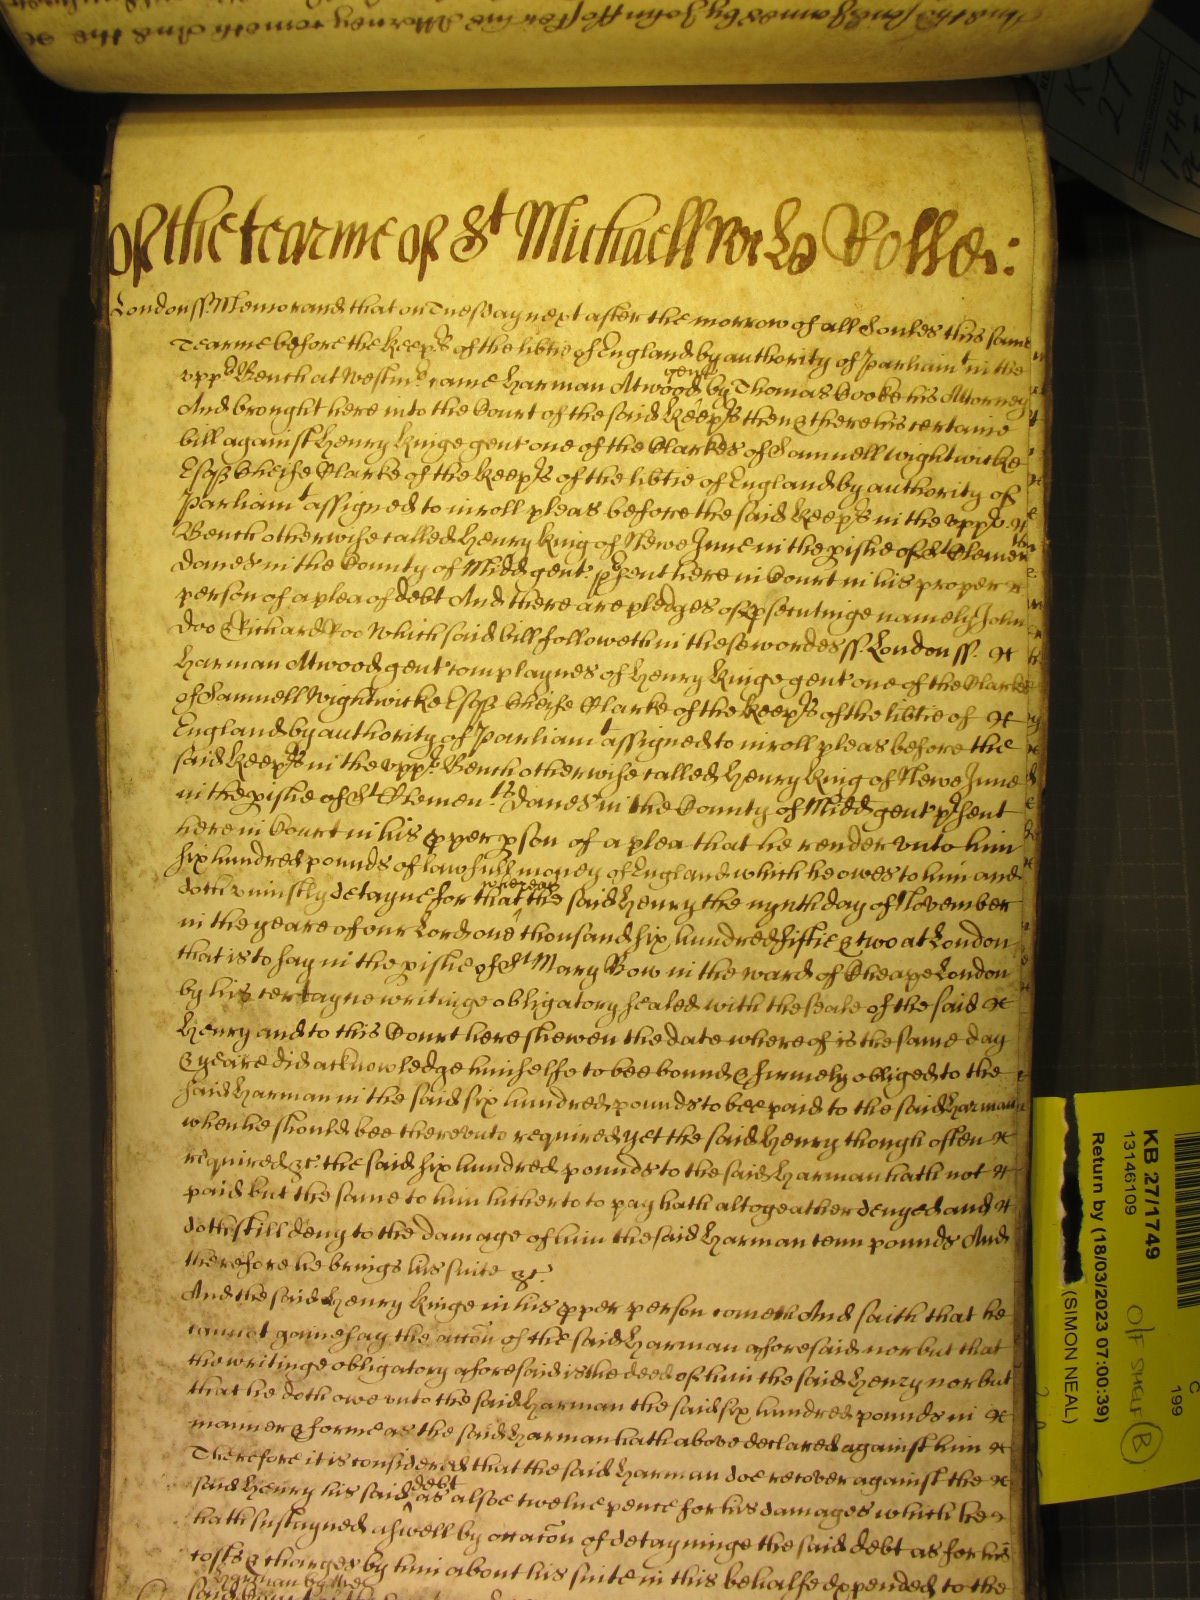 And the said James by John Hoskins his Attorney cometh And the &c
Of the tearme of St Michaell 1652 Rolle:
London ss. Memorand that on Tuesday next after the morrow of all Soules this same
Tearme before the Keeps of the libtie of England by authority of Parliamt in the
uppr Bench at Westmr came Harman Atwood gent by Thomas Cooke his Attorney
And brought here into the Court of the said Keeps then & there his certaine
bill against Henry Kinge gent one of the Clarkes of Samuell Wightwicke
Esqr Cheife Clarke of the Keeps of the libtie of England by authority of
Parliamt assigned to inroll pleas before the said Keeps in the uppr &c
Bench otherwise called Henry King of Newe Inne in the pishe of St Clement
Danes in the County of Midd gent psent here in Court in his proper
person of a plea of debt And there are pledges of psecutinge namely John
Doo & Richard Roo Which said bill followeth in these wordes ss. London ss. &c
Harman Atwood gent complaynes of Henry Kinge gent one of the Clarkes
of Samuell Wightwicke Esqr Cheife Clarke of the Keeps of the libtie of &c
England by authority of Parliamt assigned to inroll pleas before the
said Keeps in the uppr Bench otherwise called Henry King of Newe Inne
in the pishe of St Clement Danes in the County of Midd gent psent
here in Court in his pper pson of a plea that he render unto him
six hundred pounds of lawfull money of England which he owes to him and
doth uniustly detayne for that whereas the said Henry the nynth day of November
in the yeare of our Lord one thousand six hundred fiftie & two at London
that is to say in the pishe of St Mary Bow in the ward of Cheape London
by his certayne writinge obligatory sealed with the seale of the said &c
Henry and to this Court here shewen the date whereof is the same day
& yeare did acknowledge himselfe to bee bound & firmely obliged to the
said Harman in the said six hundred pounds to bee paid to the said Harman
when he should bee thereunto required yet the said Henry though often &c
required &c. the said six hundred pounds to the said Harman hath not &c
paid but the same to him hitherto to pay hath altogeather denyed and &c
doth still deny to the damage of him the said Harman tenn pounds And
therefore he brings his suite &c.
And the said Henry Kinge in his pper person comes And saith that he
cannot gainesay the accon of the said Harman aforesaid nor but that
the writinge obligatory aforesaid is the deed of him the said Henry nor but
that he doth owe unto the said Harman the said six hundred pounds in &c
manner & forme as the said Harman hath above declared against him &c
Therefore it is considered that the said Harman doe recover against the &c
said Henry his said debt as alsoe twelve pence for his damages which he
hath sustayned aswell by occacon of detayninge the said debt as for his
costs & charges by him about his suite in this behalfe expended to the
said Harman by the
KB 27/1749
13146109
Return by (18/03/2023 07:00:39)
(SIMON NEAL)
O/F SHELF B
C
199
27
1749